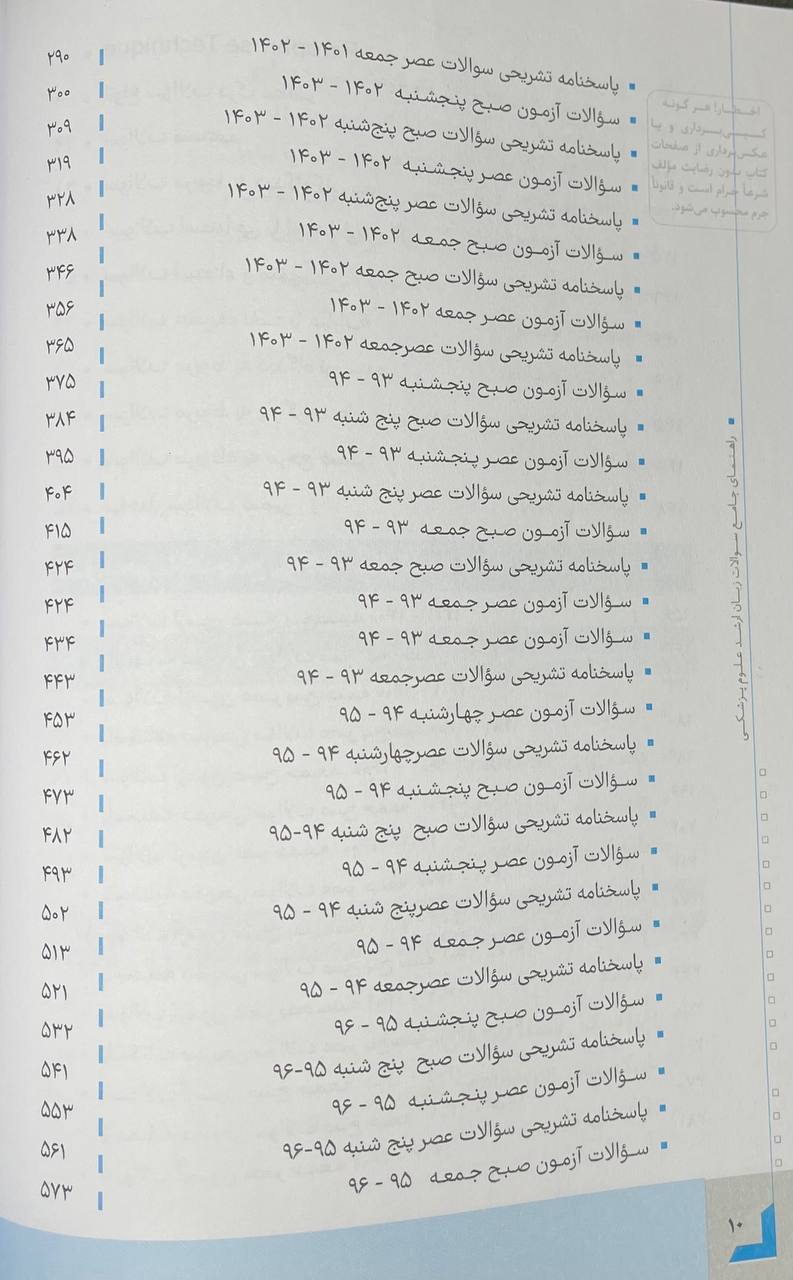 پاسخنامه تشریحی سوالات عصر جمعه ۱۴۰۱ - ۱۴۰۲ ۲۹۰
سؤالات آزمون صبح پنجشنبه ۱۴۰۲ - ۱۴۰۳ ۳۰۰
پاسخنامه تشریحی سؤالات صبح پنج‌شنبه ۱۴۰۲ - ۱۴۰۳ ۳۰۹
سؤالات آزمون عصر پنجشنبه ۱۴۰۲ - ۱۴۰۳ ۳۱۹
پاسخنامه تشریحی سؤالات عصر پنج‌شنبه ۱۴۰۲ - ۱۴۰۳ ۳۲۸
سؤالات آزمون صبح جمعه ۱۴۰۲ - ۱۴۰۳ ۳۳۸
پاسخنامه تشریحی سؤالات صبح جمعه ۱۴۰۲ - ۱۴۰۳ ۳۴۶
سؤالات آزمون عصر جمعه ۱۴۰۲ - ۱۴۰۳ ۳۵۶
پاسخنامه تشریحی سؤالات عصرجمعه ۱۴۰۲ - ۱۴۰۳ ۳۶۵
سؤالات آزمون صبح پنجشنبه ۹۳ - ۹۴ ۳۷۵
پاسخنامه تشریحی سؤالات صبح پنج شنبه ۹۳ - ۹۴ ۳۸۴
سؤالات آزمون عصر پنجشنبه ۹۳ - ۹۴ ۳۹۵
پاسخنامه تشریحی سؤالات عصر پنج شنبه ۹۳ - ۹۴ ۴۰۴
سؤالات آزمون صبح جمعه ۹۳ - ۹۴ ۴۱۵
پاسخنامه تشریحی سؤالات صبح جمعه ۹۳ - ۹۴ ۴۲۴
سؤالات آزمون عصر جمعه ۹۳ - ۹۴ ۴۲۴
سؤالات آزمون عصر جمعه ۹۳ - ۹۴ ۴۳۴
پاسخنامه تشریحی سؤالات عصرجمعه ۹۳ - ۹۴ ۴۴۳
سؤالات آزمون عصر چهارشنبه ۹۴ - ۹۵ ۴۵۳
پاسخنامه تشریحی سؤالات عصرچهارشنبه ۹۴ - ۹۵ ۴۶۲
سؤالات آزمون صبح پنجشنبه ۹۴ - ۹۵ ۴۷۳
پاسخنامه تشریحی سؤالات صبح پنج شنبه ۹۴-۹۵ ۴۸۲
سؤالات آزمون عصر پنجشنبه ۹۴ - ۹۵ ۴۹۳
پاسخنامه تشریحی سؤالات عصرپنج شنبه ۹۴ - ۹۵ ۵۰۲
سؤالات آزمون عصر جمعه ۹۴ - ۹۵ ۵۱۳
پاسخنامه تشریحی سؤالات عصرجمعه ۹۴ - ۹۵ ۵۲۱
سؤالات آزمون صبح پنجشنبه ۹۵ - ۹۶ ۵۳۲
پاسخنامه تشریحی سؤالات صبح پنج شنبه ۹۵-۹۶ ۵۴۱
سؤالات آزمون عصر پنجشنبه ۹۵ - ۹۶ ۵۵۳
پاسخنامه تشریحی سؤالات عصر پنج شنبه ۹۵-۹۶ ۵۶۱
سؤالات آزمون صبح جمعه ۹۵ - ۹۶ ۵۷۳
اخطار! هر گونه
کپی‌برداری و یا
عکس‌برداری از صفحات
کتاب بدون رضایت مؤلف
شرعاً حرام است و قانوناً
جرم محسوب می‌شود.
راهنمای جامع سوالات زبان ارشد علوم پزشکی
۱۰